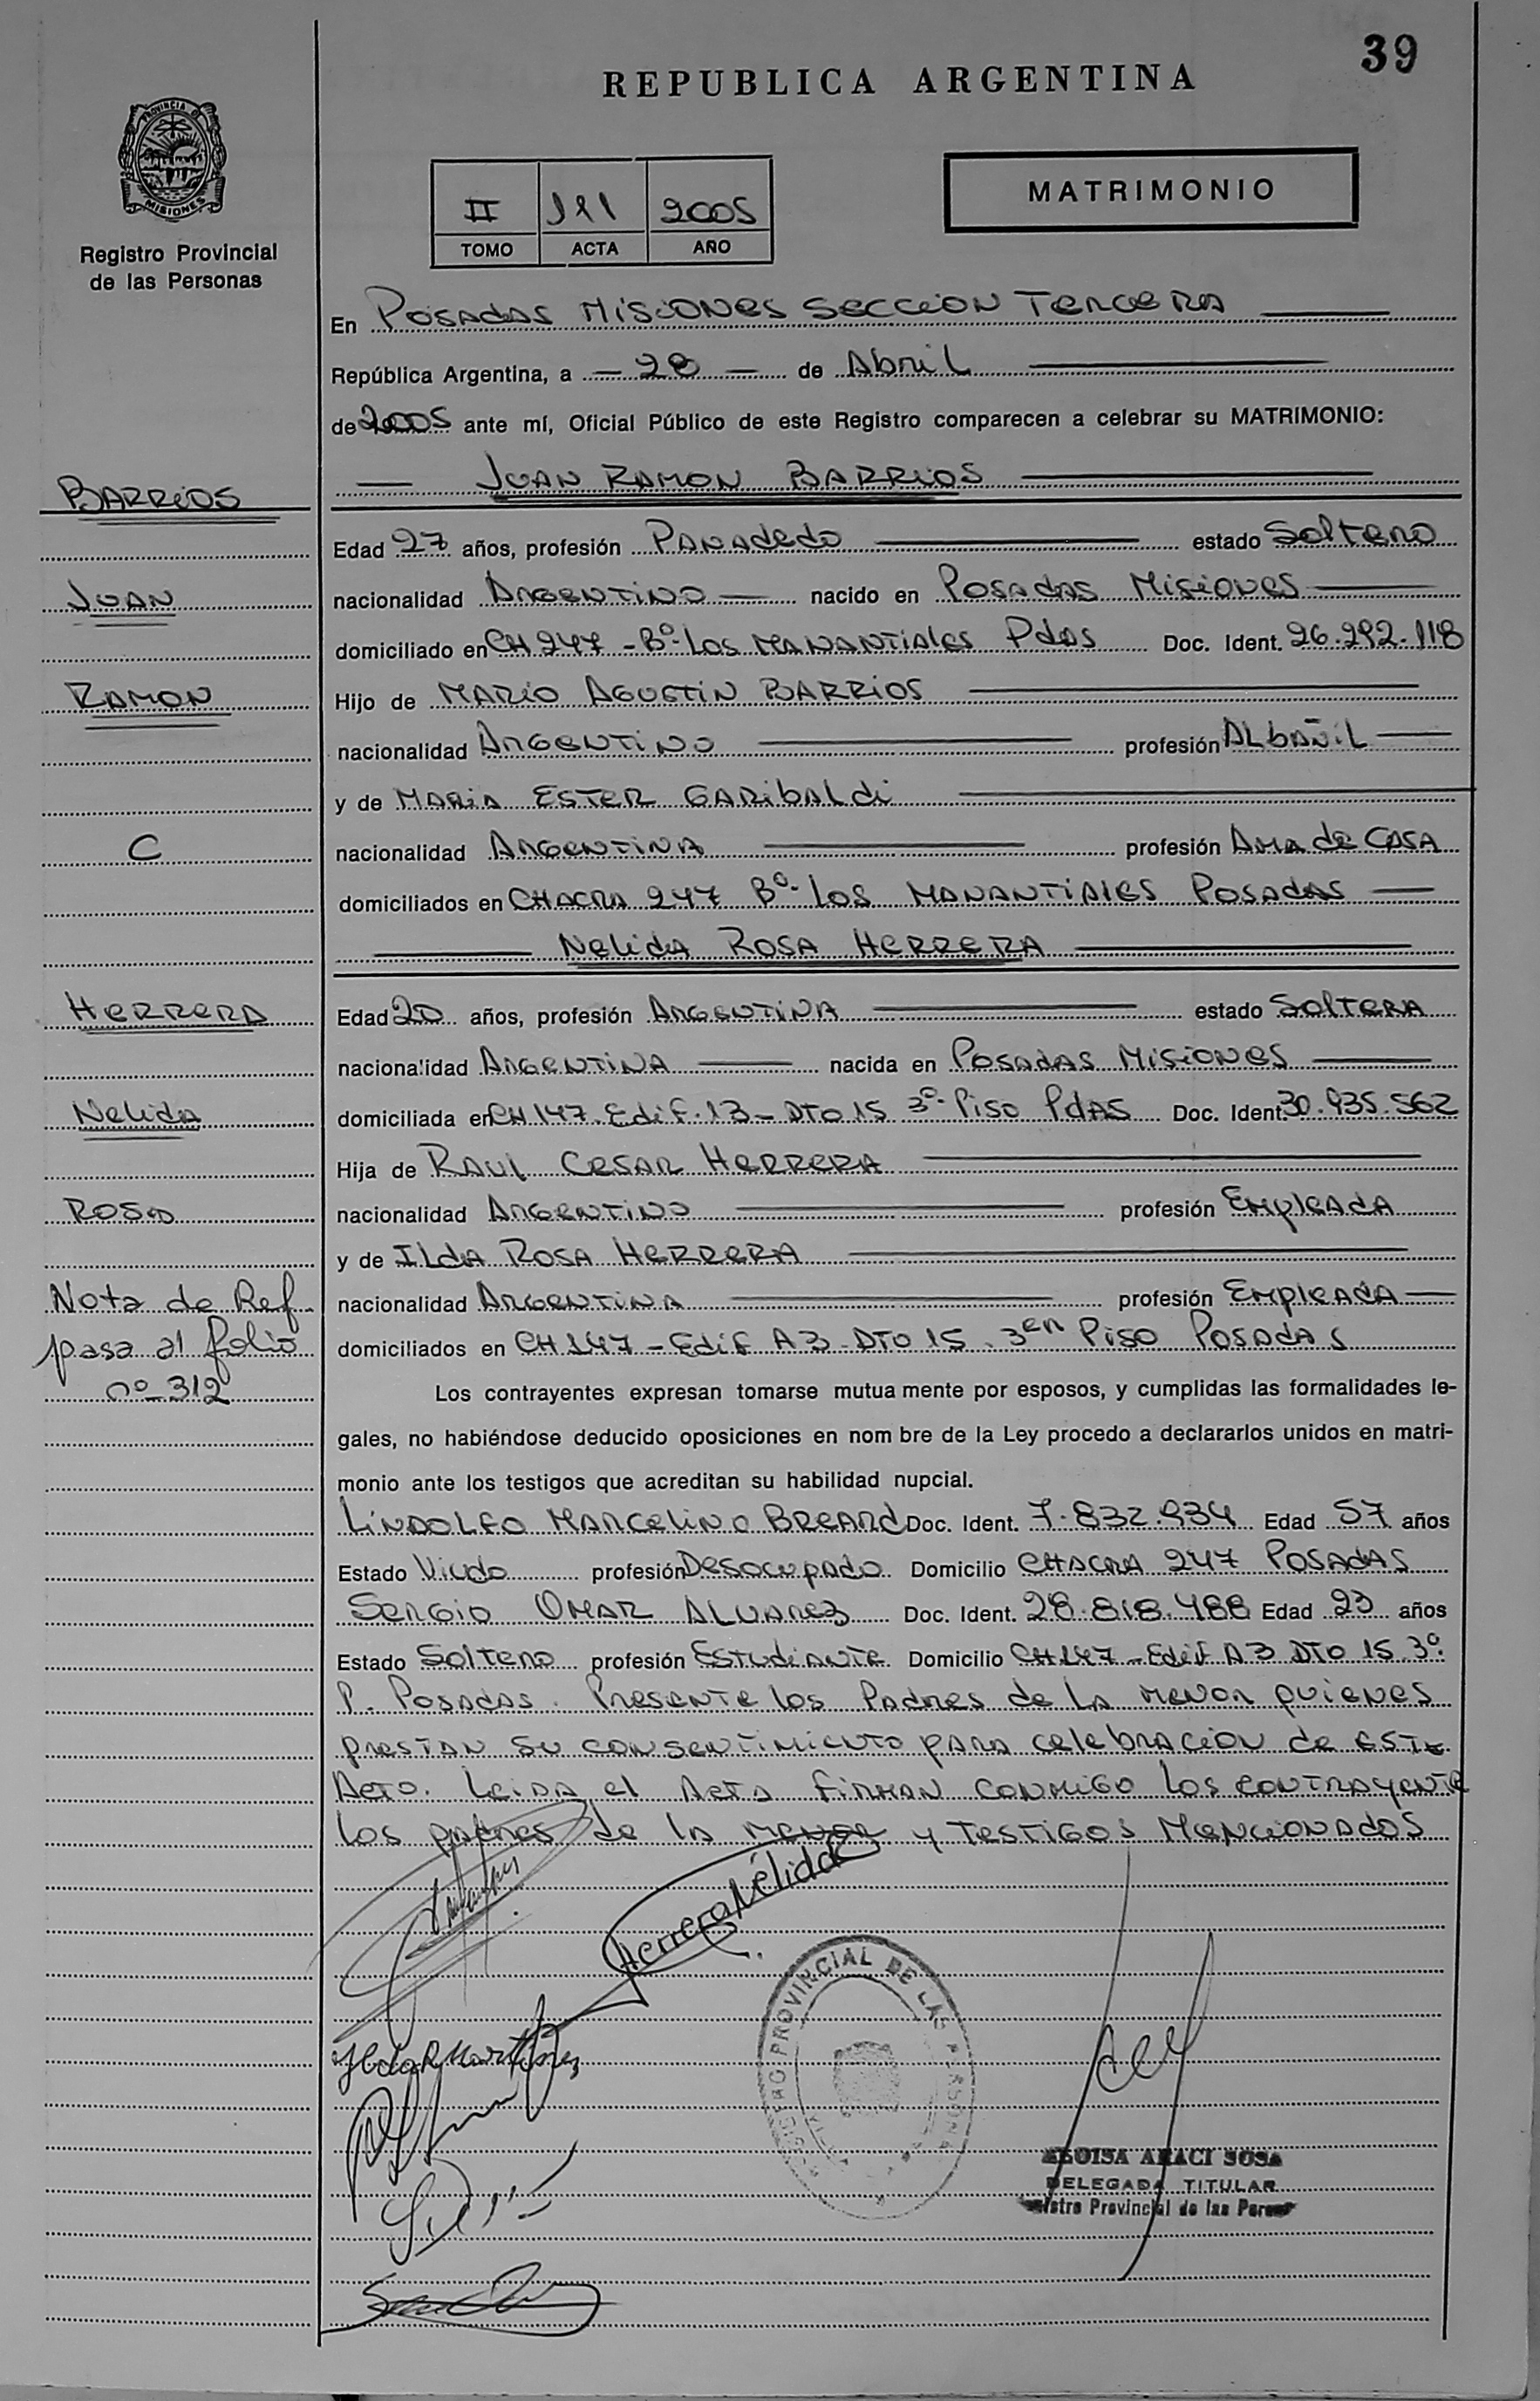 39
REPUBLICA ARGENTINA
PROVINCIA DE
MISIONES
Registro Provincial
de las Personas
II 111 2005
TOMO ACTA AÑO
MATRIMONIO
En POSADAS MISIONES SECCION TERCERA
República Argentina, a — 28 — de Abril
de 2005 ante mí, Oficial Público de este Registro comparecen a celebrar su MATRIMONIO:
JUAN RAMON BARRIOS
BARRIOS
Edad 27 años, profesión PANADEDO estado Soltero
JUAN
nacionalidad ARGENTINO nacido en POSADAS MISIONES
domiciliado en CH 247 - Bº. Los MANANTIALES Pdas Doc. Ident. 26.292.118
RAMON
Hijo de MARIO AGUSTIN BARRIOS
nacionalidad ARGENTINO profesión ALBAÑIL
y de MARIA ESTER GARIBALDI
C
nacionalidad ARGENTINA profesión AMA de CASA
domiciliados en CHACRA 247 Bº. LOS MANANTIALES POSADAS
NELIDA ROSA HERRERA
HERRERA
Edad 20 años, profesión ARGENTINA estado SOLTERA
nacionalidad ARGENTINA nacida en POSADAS MISIONES
NELIDA
domiciliada en CH 147. Edif. 13 - DTO 15 3º. Piso PdAS Doc. Ident. 30.935.562
Hija de RAUL CESAR HERRERA
ROSA
nacionalidad ARGENTINO profesión EMPLEADA
y de ILDA ROSA HERRERA
Nota de Ref
pasa al folio
nº 312
nacionalidad ARGENTINA profesión EMPLEADA
domiciliados en CH 147 - Edif A3 - DTO 15. 3er Piso POSADAS
Los contrayentes expresan tomarse mutua mente por esposos, y cumplidas las formalidades le-
gales, no habiéndose deducido oposiciones en nom bre de la Ley procedo a declararlos unidos en matri-
monio ante los testigos que acreditan su habilidad nupcial.
LINDOLFO MARCELINO BREARD Doc. Ident. 7.832.934 Edad 57 años
Estado Viudo profesión DESOCUPADO Domicilio CHACRA 247 POSADAS
SERGIO OMAR ALVAREZ Doc. Ident. 28.818.488 Edad 23 años
Estado SOLTERO profesión ESTUDIANTE Domicilio CH 147 - Edif A3 DTO 15. 3º.
P. POSADAS. PRESENTE los PADRES de LA MENOR QUIENES
PRESTAN SU CONSENTIMIENTO PARA CELEBRACION de ESTE
ACTO. LEIDA el ACTA FIRMAN CONMIGO los CONTRAYENTE
los PADRES de la MENOR y TESTIGOS MENCIONADOS
Herrera Nélida
REGISTRO PROVINCIAL DE LAS PERSONAS
ELOISA ARACI SOSA
DELEGADA TITULAR
Registro Provincial de las Person